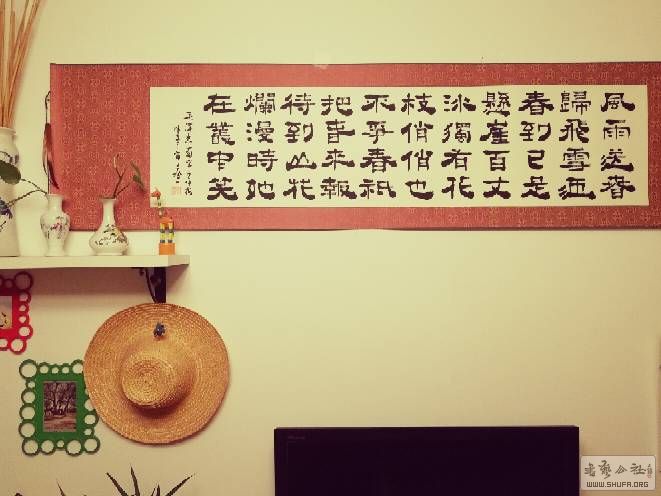 風雨送春
歸飛雪迎
春到已是
懸崖百丈
冰獨有花
枝俏俏也
不爭春祇
把春來報
待到山花
爛漫時她
在叢中笑
書藝公社
WWW.SHUFA.ORG